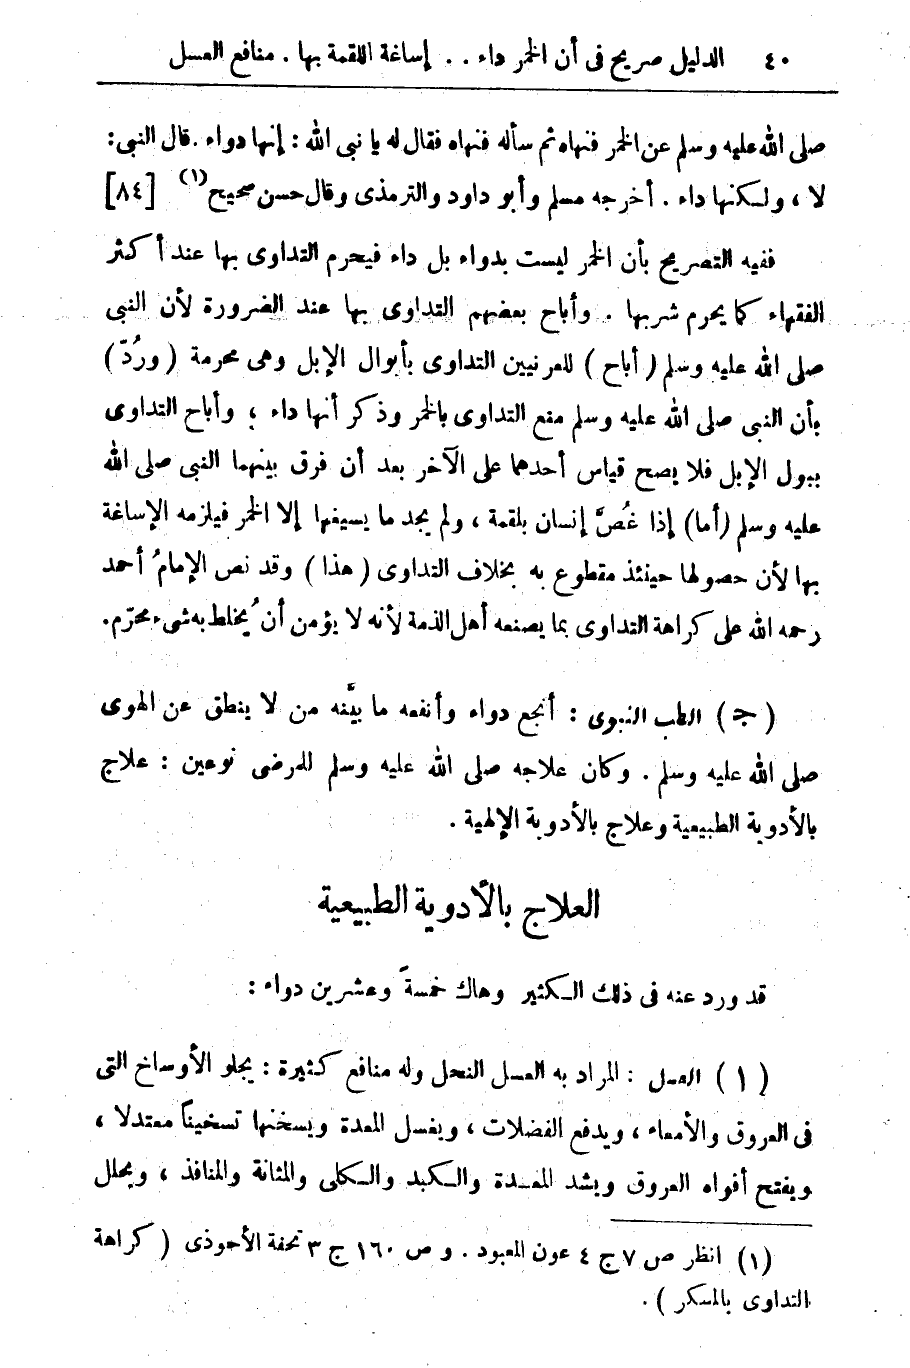 ٤٠ الدليل صريح فى أن الخمر داء . . إساغة اللقمة بها . منافع العسل
صلى الله عليه وسلم عن الخمر فنهاه ثم سأله فنهاه فقال له يا نبى الله : إنها دواء . قال النبى :
لا ، ولكنها داء . أخرجه مسلم وأبو داود والترمذى وقال حسن صحيح (١) [٨٤]
ففيه التصريح بأن الخمر ليست بدواء بل داء فيحرم التداوى بها عند أكثر
الفقهاء كما يحرم شربها . وأباح بعضهم التداوى بها عند الضرورة لأن النبى
صلى الله عليه وسلم ( أباح ) للعرنيين التداوى بأبوال الإبل وهى محرمة ( ورُدّ )
بأن النبى صلى الله عليه وسلم منع التداوى بالخمر وذكر أنها داء ؛ وأباح التداوى
ببول الإبل فلا يصح قياس أحدهما على الآخر بعد أن فرق بينهما النبى صلى الله
عليه وسلم (أما) إذا غُصَّ إنسان بلقمة ، ولم يجد ما يسيغها إلا الخمر فيلزمه الإساغة
بها لأن حصولها حينئذ مقطوع به بخلاف التداوى ( هذا ) وقد نص الإمامُ أحمد
رحمه الله على كراهة التداوى بما يصنعه أهل الذمة لأنه لا يؤمن أن يُخلط به شىء محرّم.
( جـ ) الطب النبوى : أنجع دواء وأنفعه ما بيَّنه من لا ينطق عن الهوى
صلى الله عليه وسلم . وكان علاجه صلى الله عليه وسلم للمرضى نوعين : علاج
بالأدوية الطبيعية وعلاج بالأدوية الإلهية .
العلاج بالأدوية الطبيعية
قد ورد عنه فى ذلك الكثير وهاك خمسةً وعشرين دواء :
( ١ ) العسل : المراد به العسل النحل وله منافع كثيرة : يجلو الأوساخ التى
فى العروق والأمعاء ، ويدفع الفضلات ، ويغسل المعدة ويسخنها تسخيناً معتدلا ،
ويفتح أفواه العروق ويشد المعدة والكبد والكلى والمثانة والمنافذ ، ويحلل
(١) انظر ص ٧ ج ٤ عون المعبود . و ص ١٦٠ ج ٣ تحفة الأحوذى ( كراهة
التداوى بالمسكر ) .